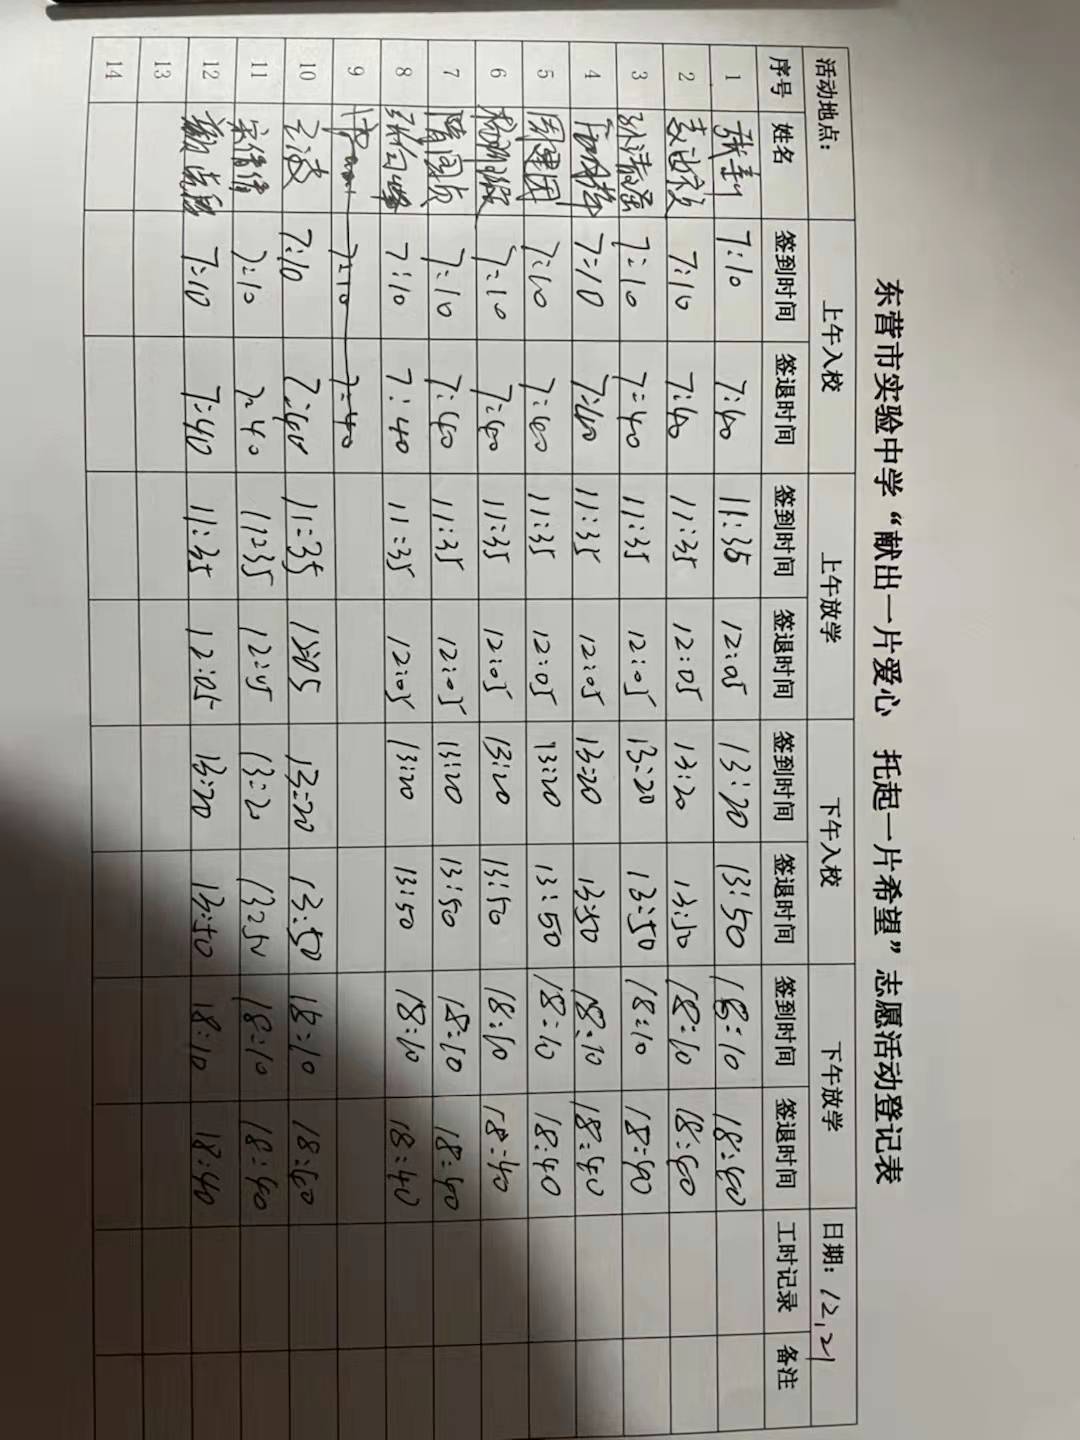 东营市实验中学“献出一片爱心 托起一片希望”志愿活动登记表
活动地点： 上午入校 上午放学 下午入校 下午放学 日期：12,21
序号 姓名 签到时间 签退时间 签到时间 签退时间 签到时间 签退时间 签到时间 签退时间 工时记录 备注
1 7:10 7:40 11:35 12:05 13:20 13:50 18:10 18:40
2 7:10 7:40 11:35 12:05 13:20 13:50 18:10 18:40
3 7:10 7:40 11:35 12:05 13:20 13:50 18:10 18:40
4 7:10 7:40 11:35 12:05 13:20 13:50 18:10 18:40
5 周建国 7:10 7:40 11:35 12:05 13:20 13:50 18:10 18:40
6 7:10 7:40 11:35 12:05 13:20 13:50 18:10 18:40
7 隋国贞 7:10 7:40 11:35 12:05 13:20 13:50 18:10 18:40
8 7:10 7:40 11:35 12:05 13:20 13:50 18:10 18:40
9 7:10 7:40
10 7:10 7:40 11:35 12:05 13:20 13:50 18:10 18:40
11 宋倩倩 7:10 7:40 11:35 13:20 13:50 18:10 18:40
12 7:10 7:40 11:35 12:05 13:20 13:50 18:10 18:40
13
14